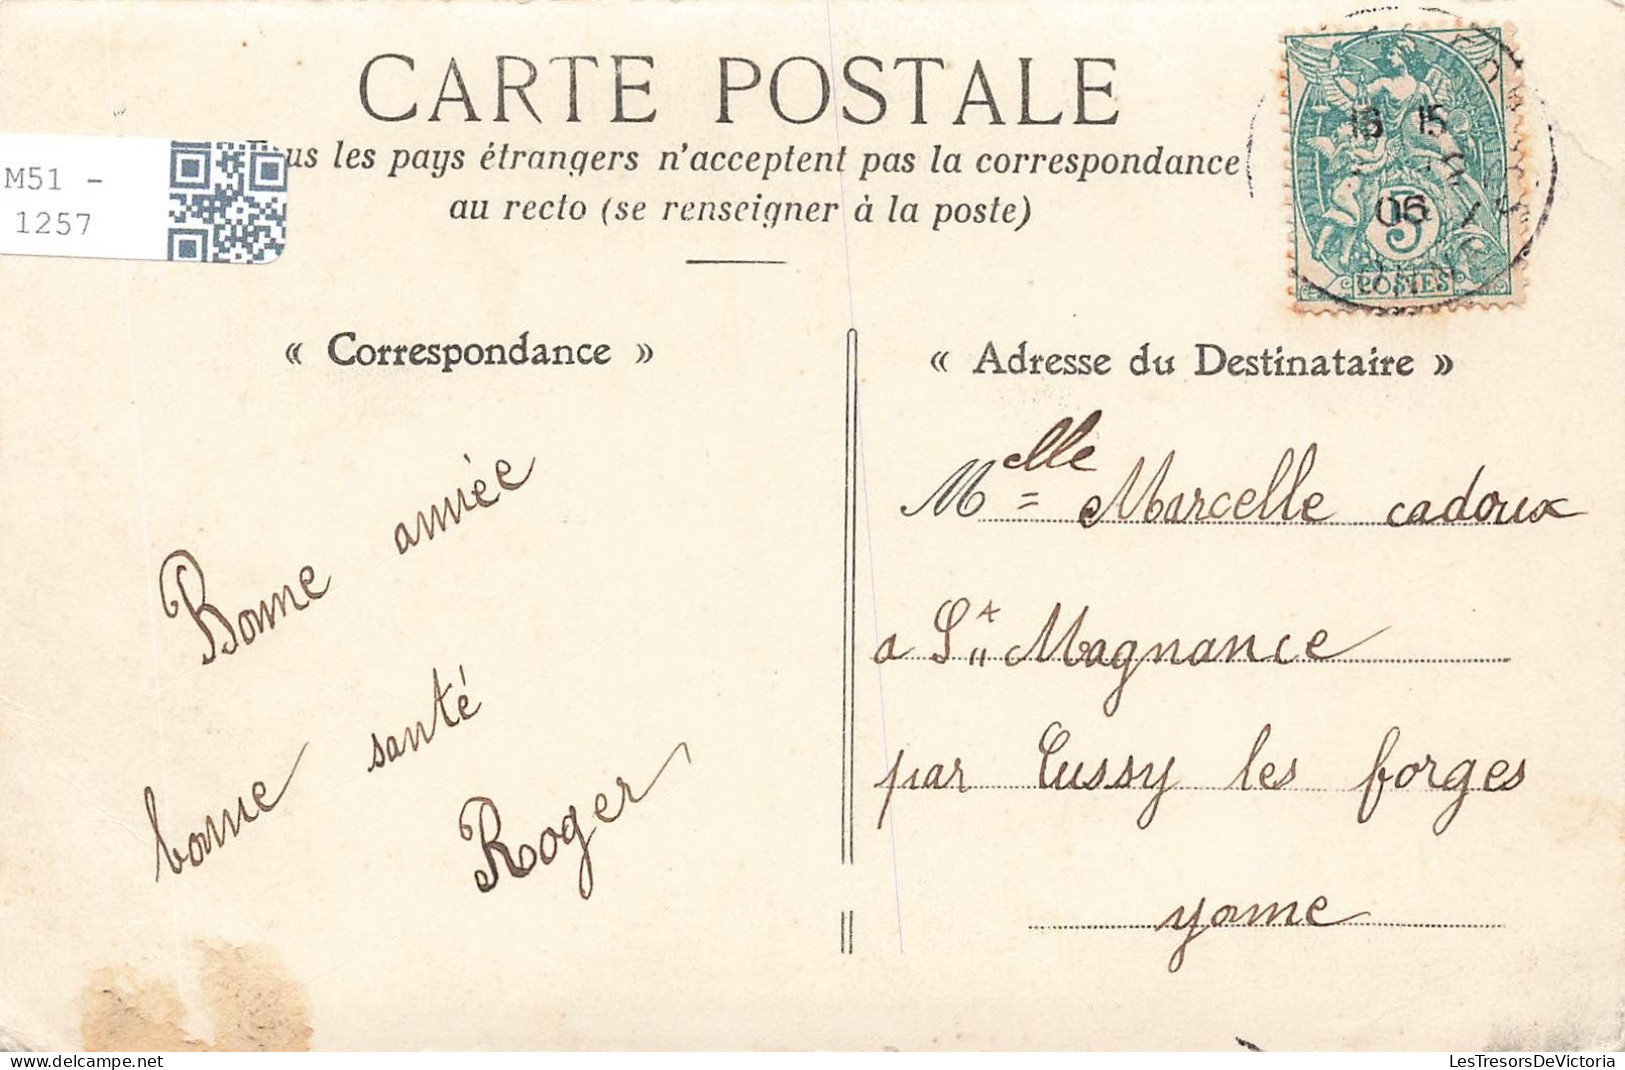 CARTE POSTALE
us les pays étrangers n'acceptent pas la correspondance
au recto (se renseigner à la poste)
M51 -
1257
« Correspondance »
Bonne année
bonne santé
Roger
« Adresse du Destinataire »
Melle = Marcelle cadoux
a St Magnance
par Cussy les forges
yonne
15
5
POSTES
LesTresorsDeVictoria